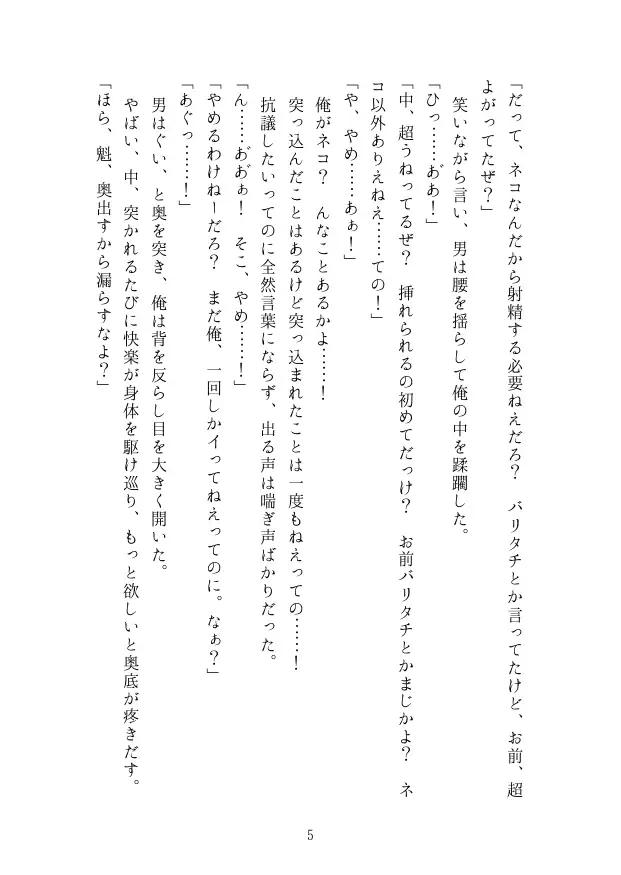 「だって、ネコなんだから射精する必要ねえだろ?　バリタチとか言ってたけど、お前、超
よがってたぜ?」
笑いながら言い、男は腰を揺らして俺の中を蹂躙した。
「ひっ……あ゙あ!」
「中、超うねってるぜ?　挿れられるの初めてだっけ?　お前バリタチとかまじかよ?　ネ
コ以外ありえねえ……ての!」
「や、やめ……あぁ!」
俺がネコ?　んなことあるかよ……!
突っ込んだことはあるけど突っ込まれたことは一度もねえっての……!
抗議したいってのに全然言葉にならず、出る声は喘ぎ声ばかりだった。
「ん……あ゙あ゙ぁ!　そこ、やめ……!」
「やめるわけねーだろ?　まだ俺、一回しかイってねえってのに。なぁ?」
「あぐっ……!」
男はぐい、と奥を突き、俺は背を反らし目を大きく開いた。
やばい、中、突かれるたびに快楽が身体を駆け巡り、もっと欲しいと奥底が疼きだす。
「ほら、魁、奥出すから漏らすなよ?」
5